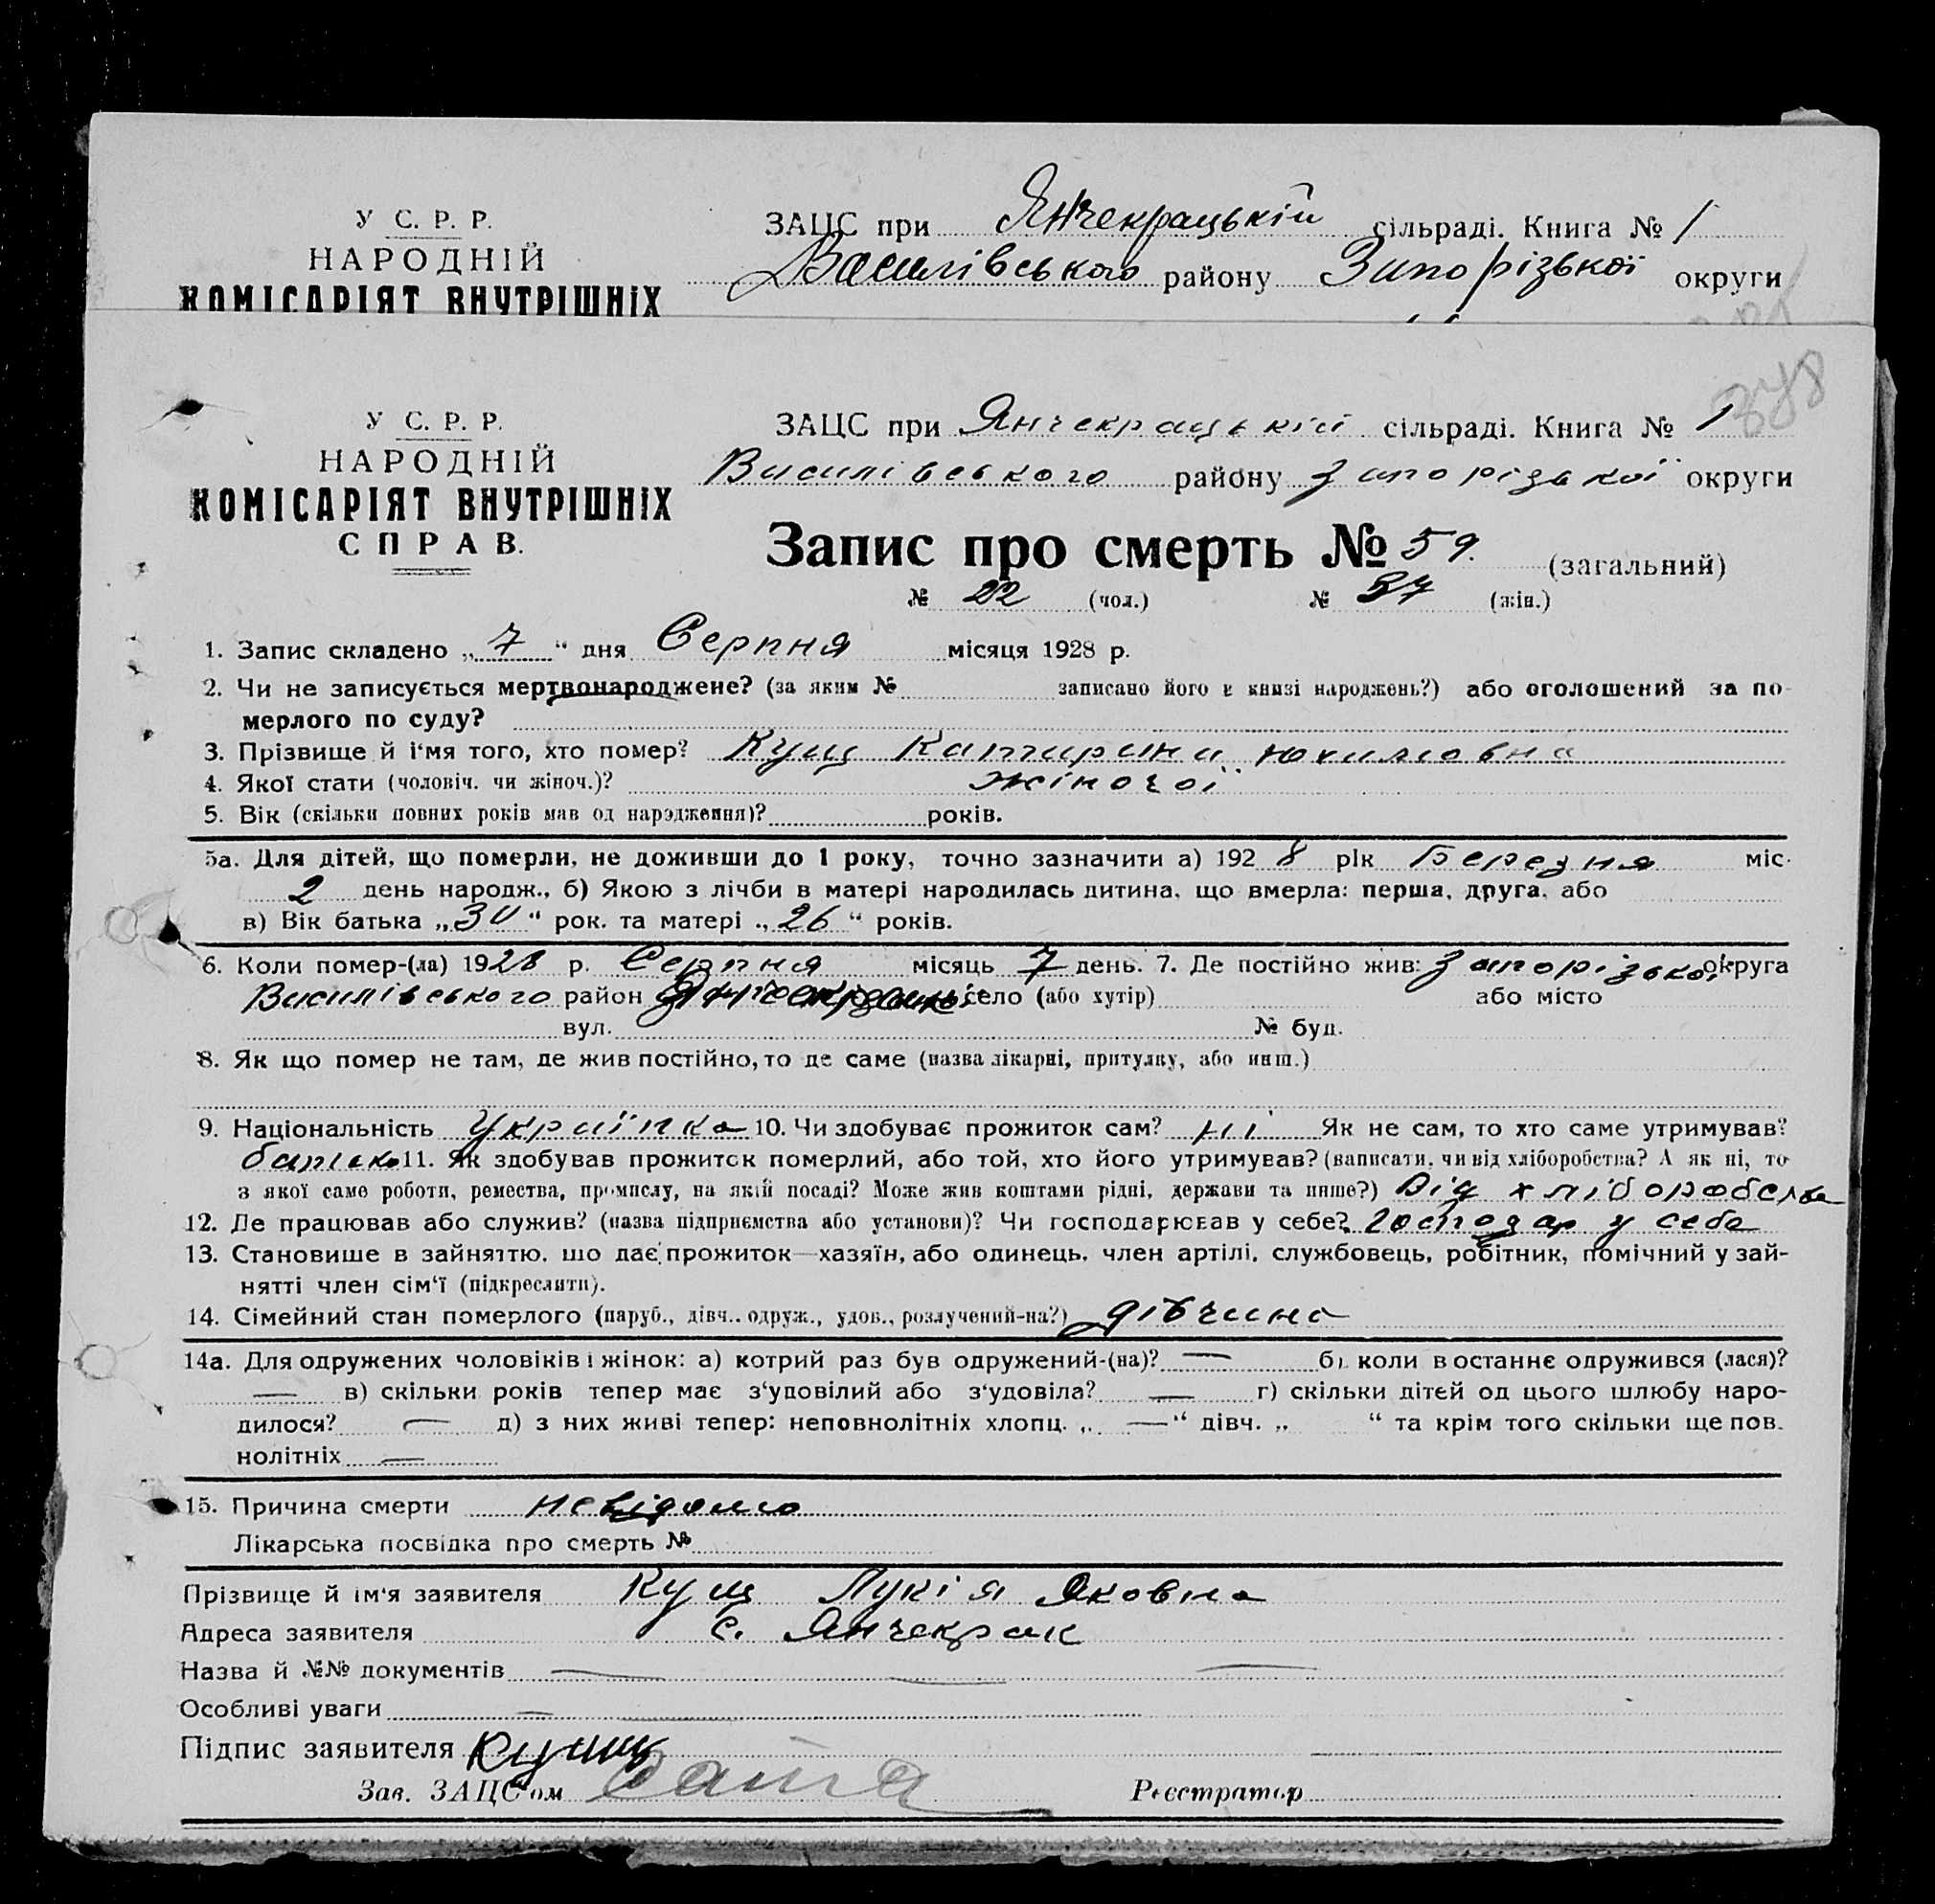 У С. Р. Р.
НАРОДНІЙ
КОМІСАРІЯТ ВНУТРІШНІХ
ЗАЦС при Янчекрацькій сільраді. Книга № 1
Василівського району Запорізької округи
348
У С. Р. Р.
НАРОДНІЙ
КОМІСАРІЯТ ВНУТРІШНІХ
СПРАВ.
ЗАЦС при Янчекрацькій сільраді. Книга № 1
Василівського району Запорізької округи
Запис про смерть № 59. (загальний)
№ 22 (чол.) № 37 (жін.)
1. Запис складено „ 7 “ дня Серпня місяця 1928 р.
2. Чи не записується мертвонароджене? (за яким № записано його в книзі народжень?) або оголошений за по-
мерлого по суду?
3. Прізвище й і'мя того, хто помер? Кущ Катирина Юхимовна
4. Якої стати (чоловіч. чи жіноч.)? жіночої
5. Вік (скільки повних років мав од нарэдження)? років.
5а. Для дітей, що померли, не доживши до 1 року, точно зазначити а) 192 8 рік Березня міс.
2 день народж., б) Якою з лічби в матері народилась дитина, що вмерла: перша, друга, або
в) Вік батька „ 30 “ рок. та матері „ 26 “ років.
6. Коли помер-(ла) 1928 р. Серпня місяць 7 день. 7. Де постійно жив: Запорізької округа
Василівського район село (або хутір) або місто
вул. № буд.
8. Як що помер не там, де жив постійно, то де саме (назва лікарні, притулку, або инш.)
9. Національність Україінка 10. Чи здобуває прожиток сам? ні Як не сам, то хто саме утримував?
батько 11. Як здобував прожиток померлий, або той, хто його утримував? (написати, чи від хліборобства? А як ні, то
з якої саме роботи, ремества, промислу, на якій посаді? Може жив коштами рідні, держави та инше?) Від хліборобства
12. Де працював або служив? (назва підприємства або установи)? Чи господарював у себе? Господар у себе
13. Становище в зайняттю, що дає прожиток—хазяїн, або одинець, член артілі, службовець, робітник, помічний у зай-
нятті член сім'ї (підкреслити).
14. Сімейний стан померлого (паруб., дівч., одруж., удов., розлучений-на?) дівчина
14а. Для одружених чоловіків і жінок: а) котрий раз був одружений-(на)? — б) коли в останнє одружився (лася)?
— в) скільки років тепер має з'удовілий або з'удовіла? — г) скільки дітей од цього шлюбу наро-
дилося? — д) з них живі тепер: неповнолітніх хлопц. „ — “ дівч. „ “ та крім того скільки ще пов.
нолітніх —
15. Причина смерти невідомо
Лікарська посвідка про смерть №
Прізвище й ім'я заявителя Кущ Лукія Яковна
Адреса заявителя с. Янчекрак
Назва й №№ документів — — —
Особливі уваги —
Підпис заявителя Кущ
Зав. ЗАЦС'ом
Реєстратор